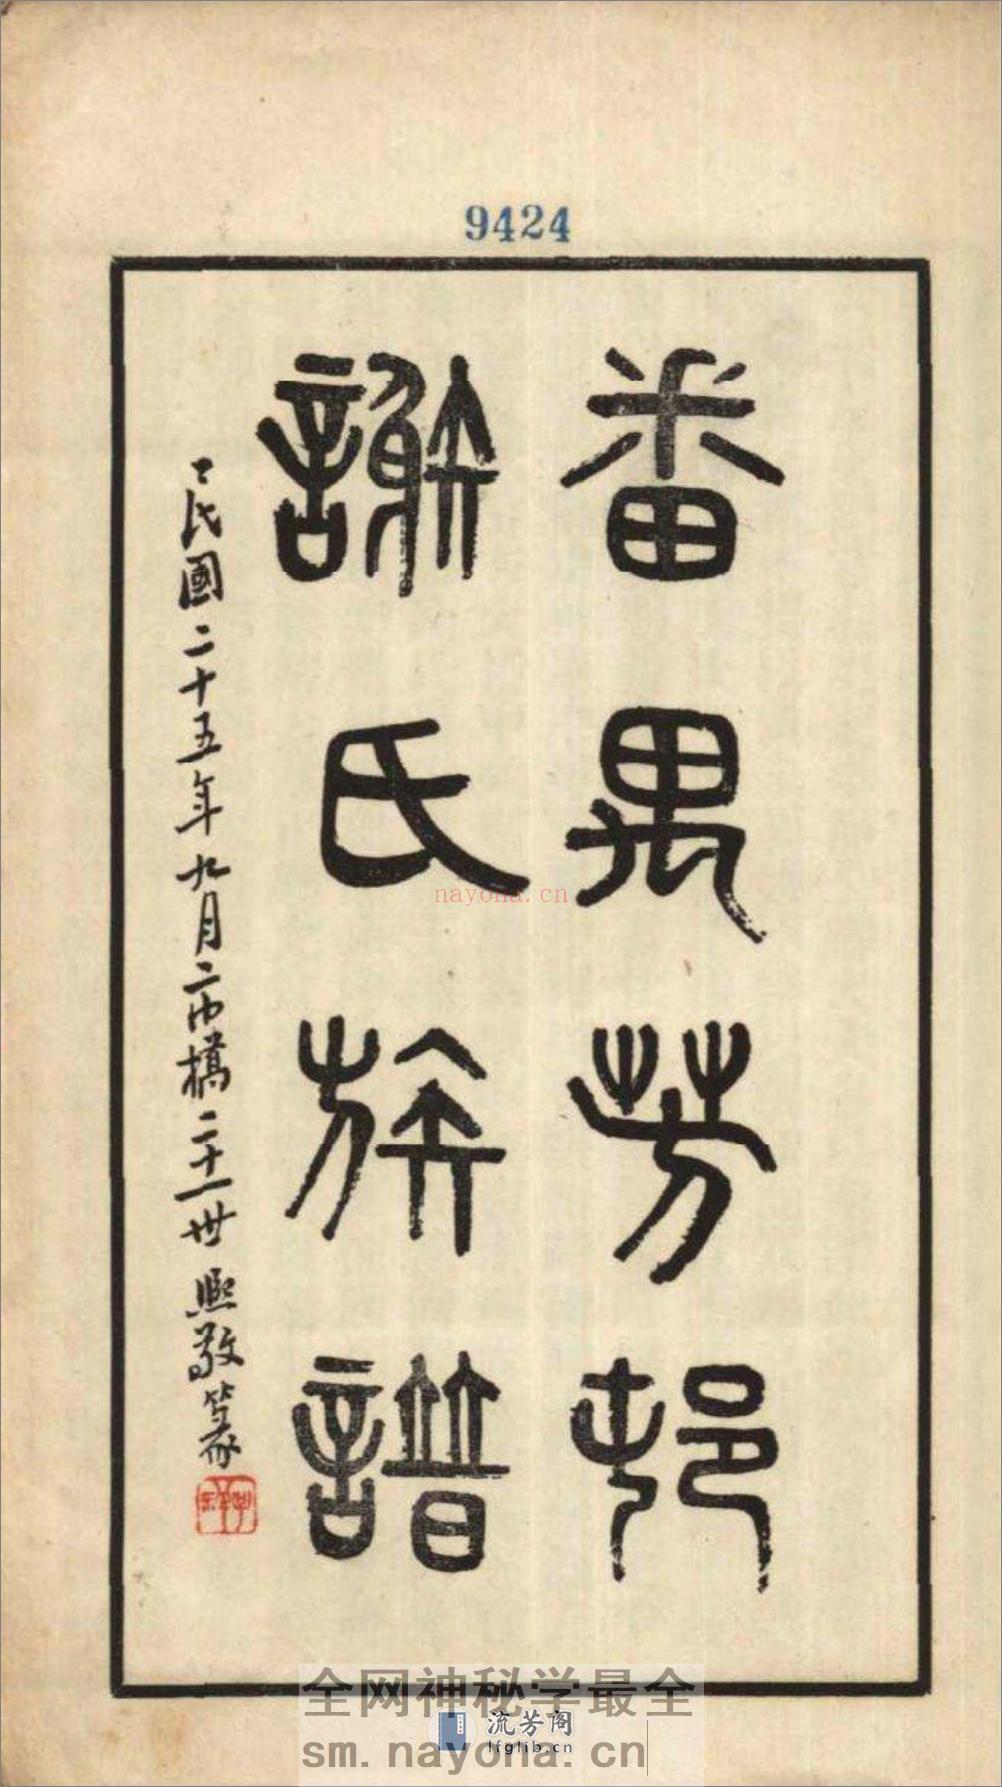 9424
番禺芳邨
謝氏族譜
民國二十五年九月市橋二十一世熙敬篆
nayona.cn
全网神秘学最全
流芳阁
lfglib.cn
sm.nayona.cn